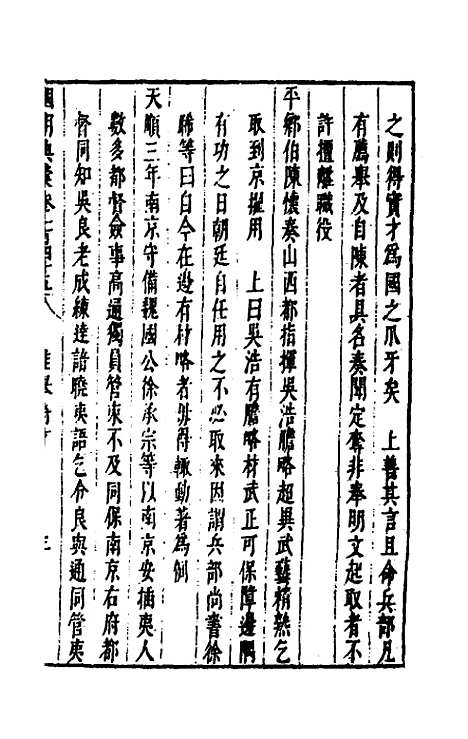 之則得實才為國之爪牙矣　上善其言且命兵部凡
有薦舉及自陳者具名奏聞定奪非奉明文起取者不
許擅離職役
平鄉伯陳懷奏山西都指揮吳浩膽略超異武藝精熟乞
取到京擢用　上曰吳浩有膽略材武正可保障邊關
有功之日朝廷自任用之不必取來因謂兵部尚書徐
晞等曰自今在邊有材略者毋得輒動著為例
天順三年南京守備魏國公徐承宗等以南京安插夷人
數多都督僉事高通獨員管束不及同保南京右府都
督同知吳良老成練達諳曉夷語乞令良與通同管夷
國朝典彙卷
三